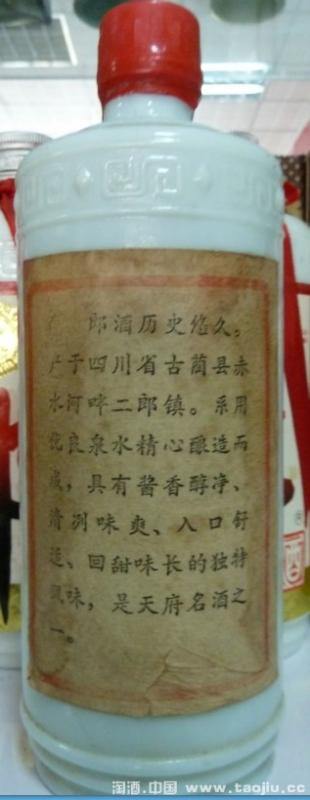 郎酒历史悠久。
产于四川省古蔺县赤
水河畔二郎镇。系用
优良泉水精心酿造而
成，具有酱香醇净、
清冽味爽、入口舒
适、回甜味长的独特
风味，是天府名酒之
一。
淘酒.中国 www.taojiu.cc